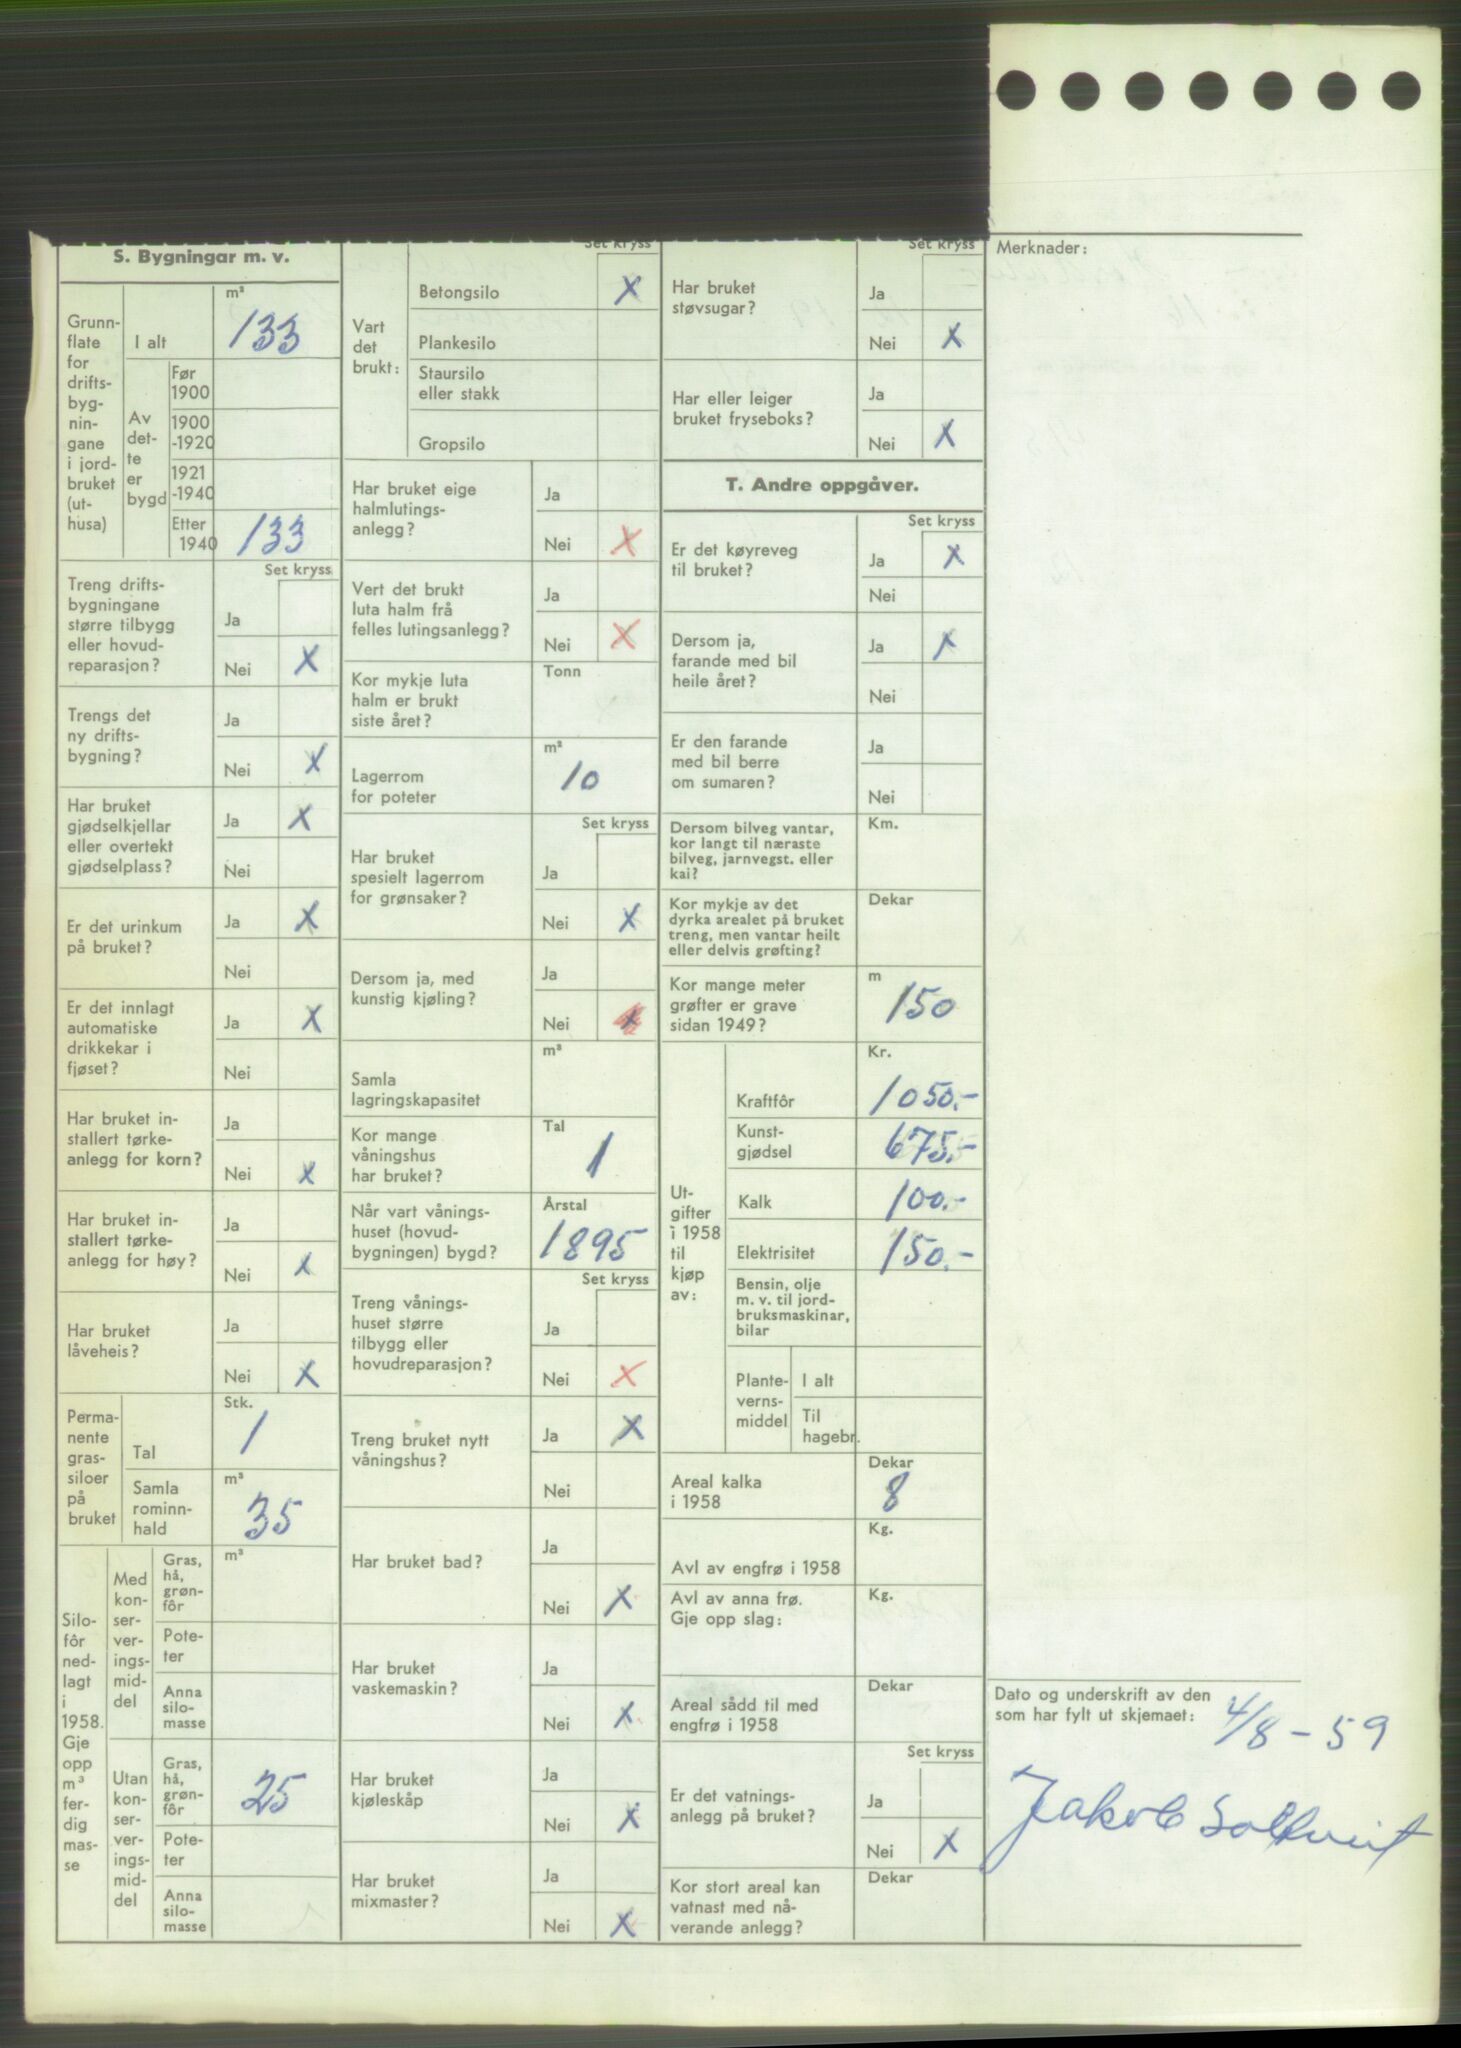 S. Bygningar m. v.
Grunn-
flate
for
drifts-
byg-
nin-
gane
i jord-
bruket
(ut-
husa)
I alt
m²
133
Av
det-
te
er
bygd
Før
1900
1900
-1920
1921
-1940
Etter
1940
133
Set kryss
Treng drifts-
bygningane
større tilbygg
eller hovud-
reparasjon?
Ja
Nei X
Trengs det
ny drifts-
bygning?
Ja
Nei X
Har bruket
gjødselkjellar
eller overtekt
gjødselplass?
Ja X
Nei
Er det urinkum
på bruket?
Ja X
Nei
Er det innlagt
automatiske
drikkekar i
fjøset?
Ja X
Nei
Har bruket in-
stallert tørke-
anlegg for korn?
Ja
Nei X
Har bruket in-
stallert tørke-
anlegg for høy?
Ja
Nei X
Har bruket
låveheis?
Ja
Nei X
Perma-
nente
gras-
siloer
på
bruket
Tal
Stk.
1
Samla
rominn-
hald
m³
35
Silo-
fôr
ned-
lagt
i
1958.
Gje
opp
m³
fer-
dig
mas-
se
Med
kon-
ser-
ver-
ings-
mid-
del
Gras,
hå,
grøn-
fôr
m³
Pote-
ter
Anna
silo-
masse
Utan
kon-
ser-
ver-
ings-
mid-
del
Gras,
hå,
grøn-
fôr
25
Pote-
ter
Anna
silo-
masse
Set kryss
Vart
det
brukt:
Betongsilo X
Plankesilo
Staursilo
eller stakk
Gropsilo
Har bruket eige
halmlutings-
anlegg?
Ja
Nei X
Vert det brukt
luta halm frå
felles lutingsanlegg?
Ja
Nei X
Kor mykje luta
halm er brukt
siste året?
Tonn
Lagerrom
for poteter
m²
10
Set kryss
Har bruket
spesielt lagerrom
for grønsaker?
Ja
Nei X
Dersom ja, med
kunstig kjøling?
Ja
Nei X
Samla
lagringskapasitet
m³
Kor mange
våningshus
har bruket?
Tal
1
Når vart vånings-
huset (hovud-
bygningen) bygd?
Årstal
1895
Set kryss
Treng vånings-
huset større
tilbygg eller
hovudreparasjon?
Ja
Nei X
Treng bruket nytt
våningshus?
Ja X
Nei
Har bruket bad?
Ja
Nei X
Har bruket
vaskemaskin?
Ja
Nei X
Har bruket
kjøleskåp
Ja
Nei X
Har bruket
mixmaster?
Ja
Nei X
Set kryss
Har bruket
støvsugar?
Ja
Nei X
Har eller leiger
bruket fryseboks?
Ja
Nei X
T. Andre oppgåver.
Set kryss
Er det køyreveg
til bruket?
Ja X
Nei
Dersom ja,
farande med bil
heile året?
Ja X
Nei
Er den farande
med bil berre
om sumaren?
Ja
Nei
Dersom bilveg vantar,
kor langt til næraste
bilveg, jarnvegst. eller
kai?
Km.
Kor mykje av det
dyrka arealet på bruket
treng, men vantar heilt
eller delvis grøfting?
Dekar
Kor mange meter
grøfter er grave
sidan 1949?
m
150
Ut-
gifter
i 1958
til
kjøp
av:
Kr.
Kraftfôr 1050.-
Kunst-
gjødsel 675.-
Kalk 100.-
Elektrisitet 150.-
Bensin, olje
m. v. til jord-
bruksmaskinar,
bilar
Plante-
verns-
middel
I alt
Til
hagebr.
Areal kalka
i 1958
Dekar
8
Avl av engfrø i 1958
Kg.
Avl av anna frø.
Gje opp slag:
Kg.
Areal sådd til med
engfrø i 1958
Dekar
Set kryss
Er det vatnings-
anlegg på bruket?
Ja
Nei X
Kor stort areal kan
vatnast med nå-
verande anlegg?
Dekar
Merknader:
Dato og underskrift av den
som har fylt ut skjemaet: 4/8 - 59
Jakob Solhveit